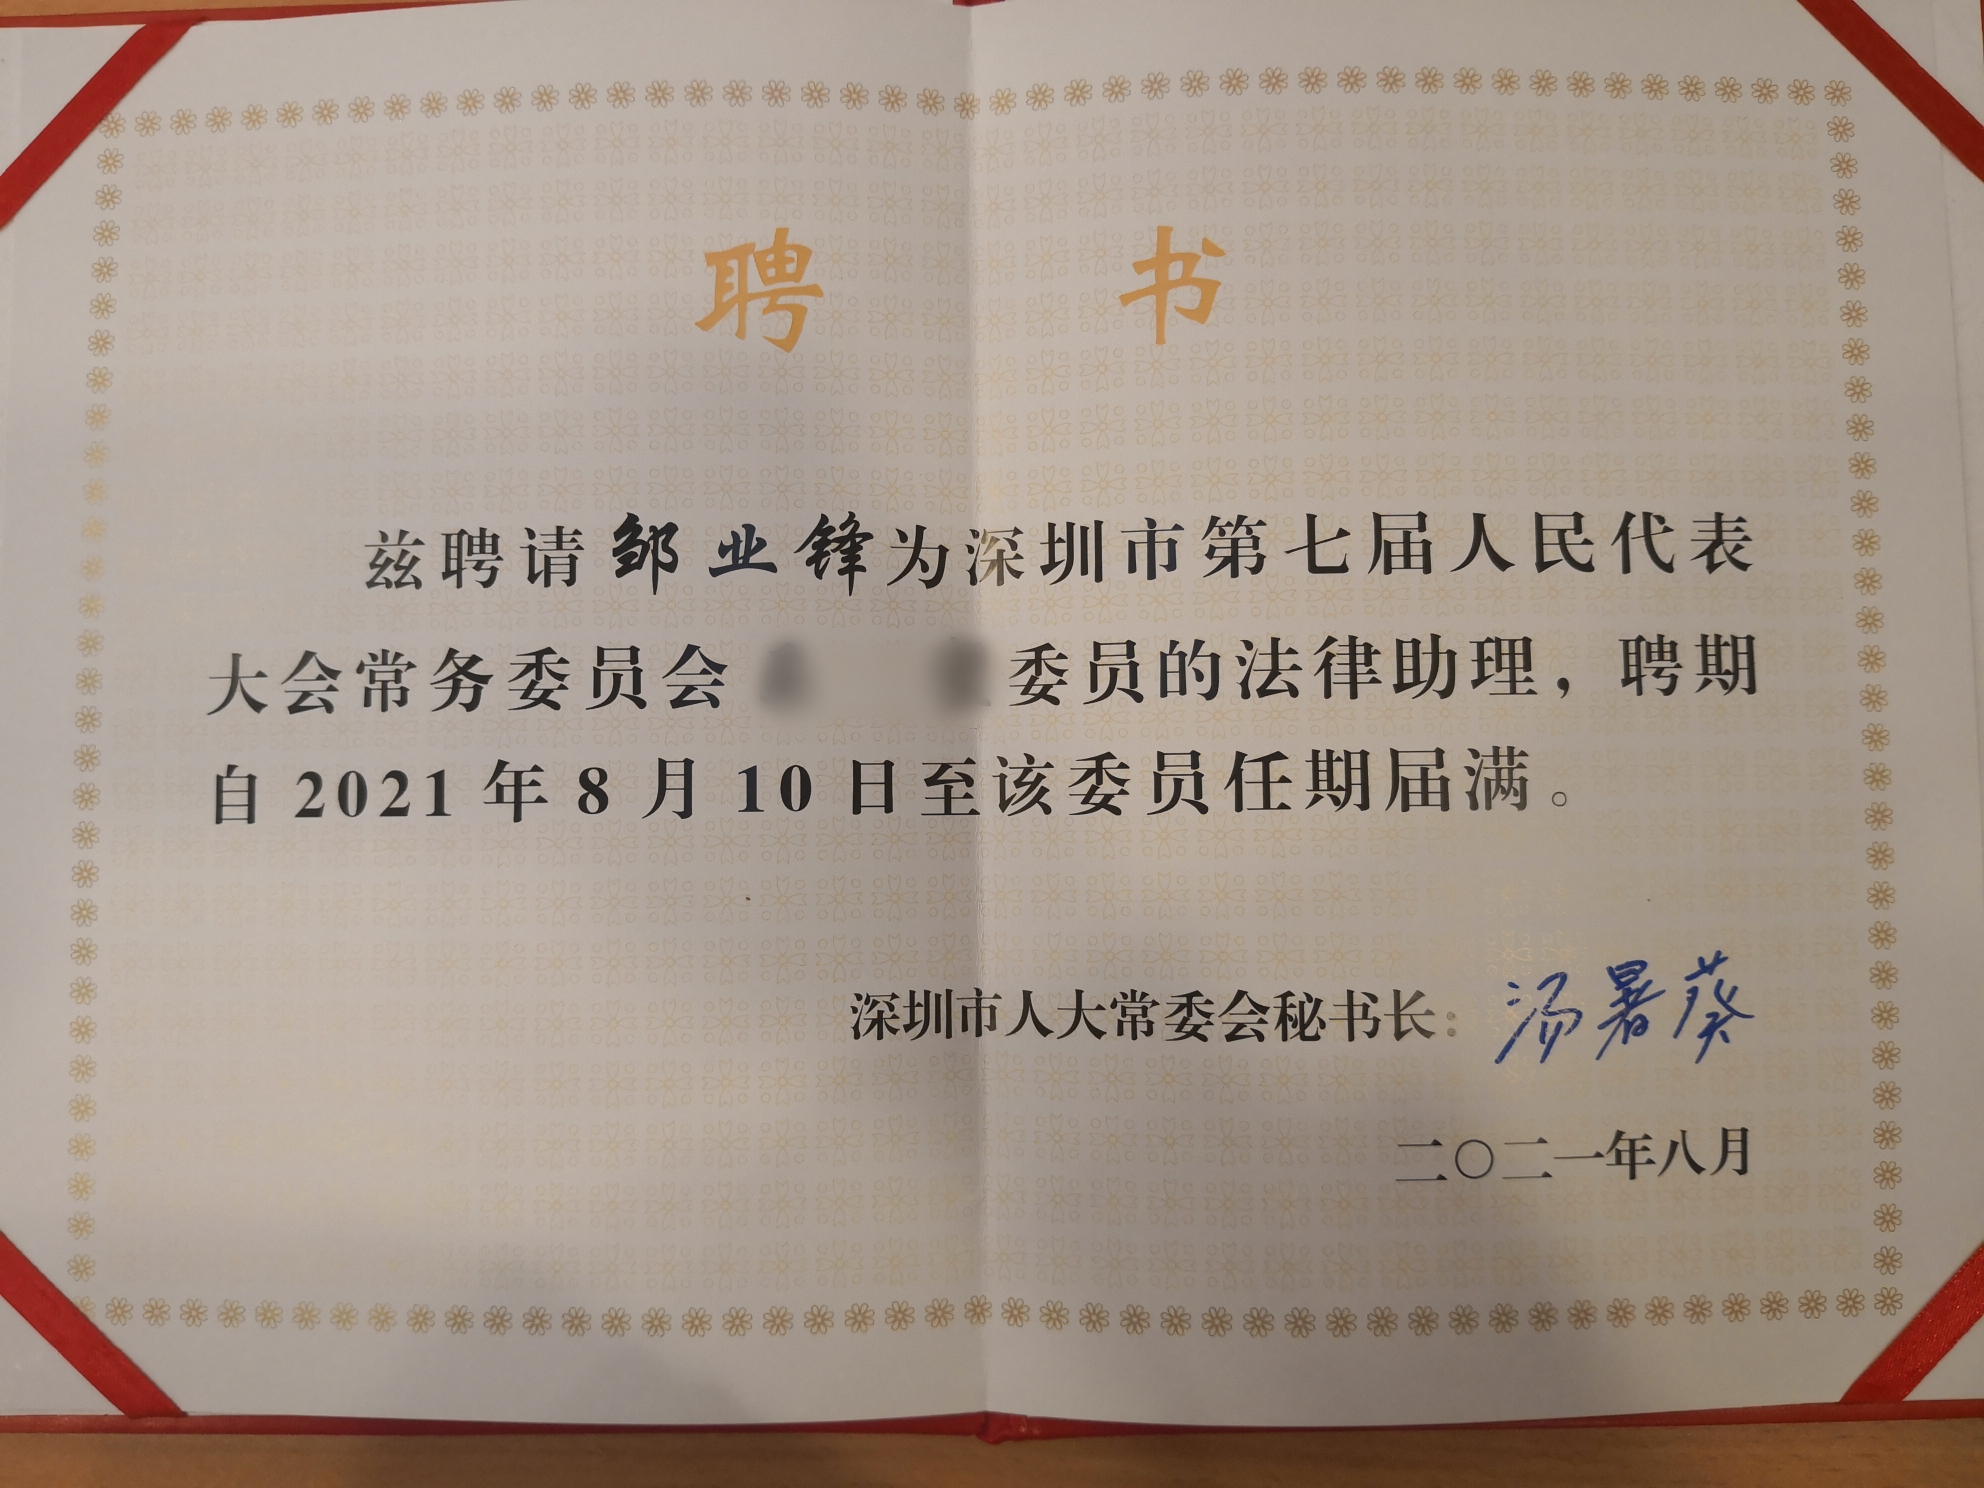 聘 书
兹聘请邹业锋为深圳市第七届人民代表
大会常务委员会 委员的法律助理，聘期
自2021年8月10日至该委员任期届满。
深圳市人大常委会秘书长：汤暑葵
二〇二一年八月